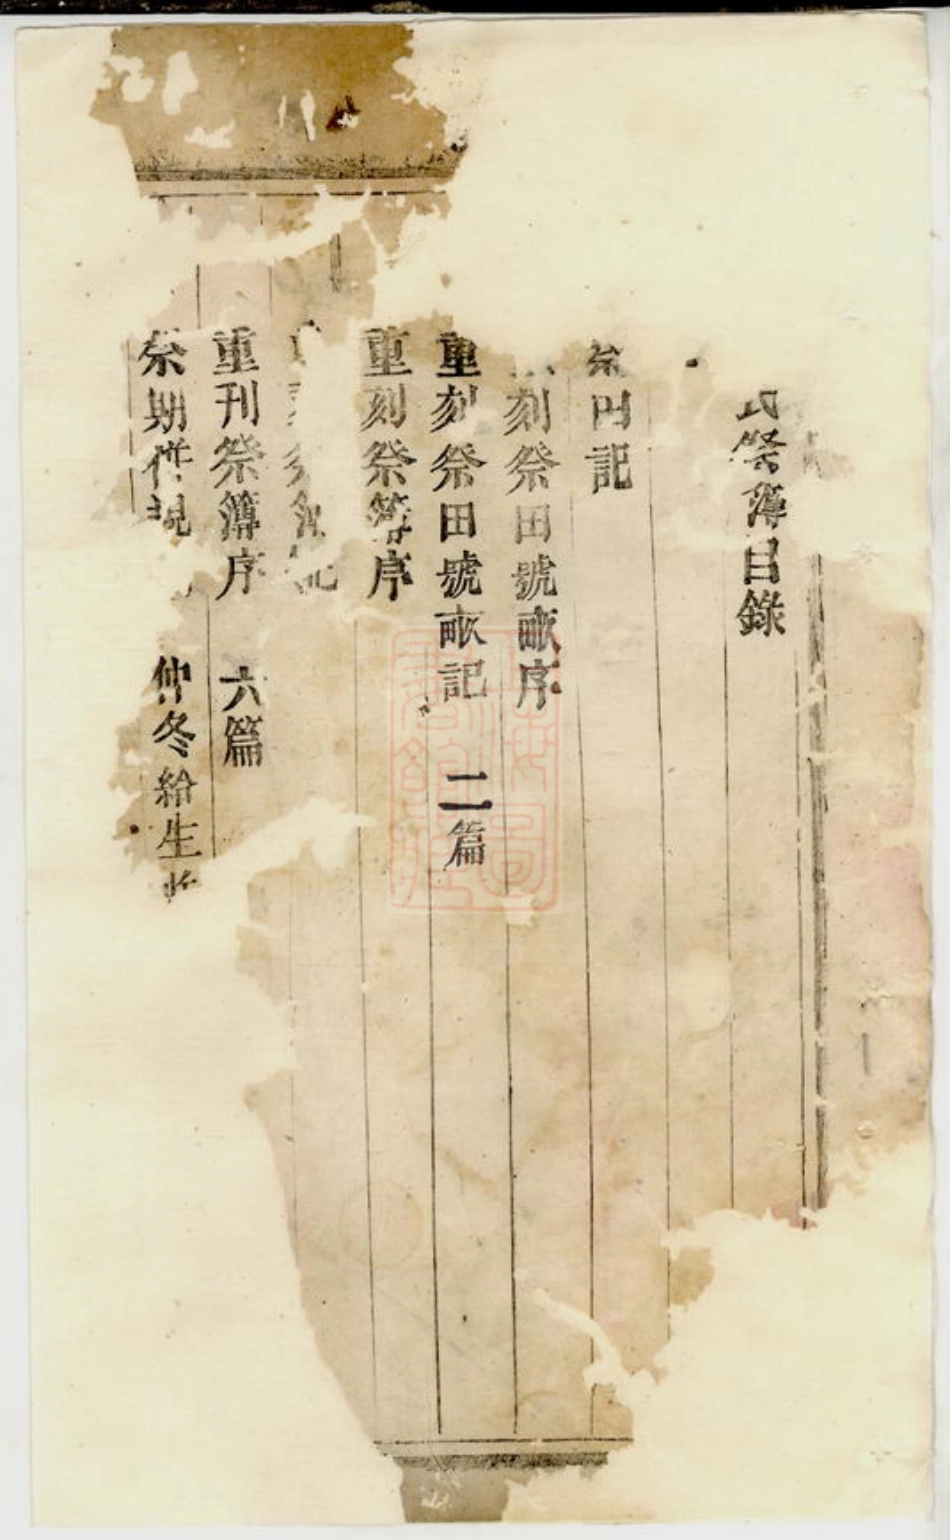 氏祭簿目錄
祭田記
刻祭田號畝序
重刻祭田號畝記 二篇
重刻祭簿序
重刊祭簿序 六篇
祭期併規 仲冬給生